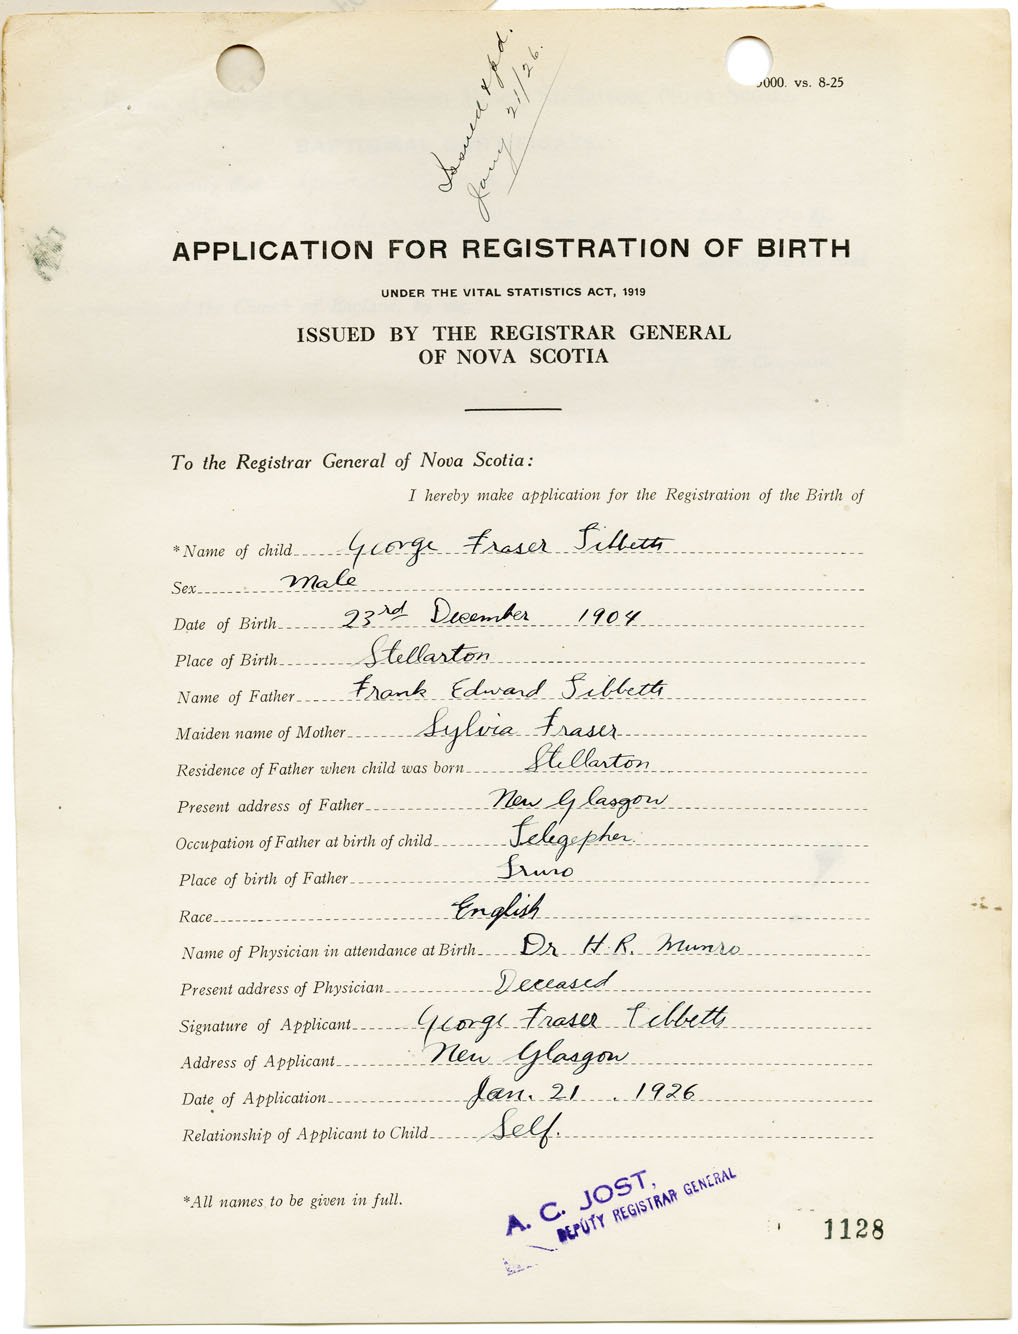 Issued & pd.
Jany 21/26.
000. vs. 8-25
APPLICATION FOR REGISTRATION OF BIRTH
UNDER THE VITAL STATISTICS ACT, 1919
ISSUED BY THE REGISTRAR GENERAL
OF NOVA SCOTIA
To the Registrar General of Nova Scotia:
I hereby make application for the Registration of the Birth of
*Name of child George Fraser Tibbetts
Sex Male
Date of Birth 23rd December 1904
Place of Birth Stellarton
Name of Father Frank Edward Tibbetts
Maiden name of Mother Sylvia Fraser
Residence of Father when child was born Stellarton
Present address of Father New Glasgow
Occupation of Father at birth of child Telegepher.
Place of birth of Father Truro
Race English
Name of Physician in attendance at Birth Dr H. R. Munro
Present address of Physician Deceased
Signature of Applicant George Fraser Tibbetts
Address of Applicant New Glasgow
Date of Application Jan. 21. 1926
Relationship of Applicant to Child Self.
*All names to be given in full.
A. C. JOST,
DEPUTY REGISTRAR GENERAL
1128